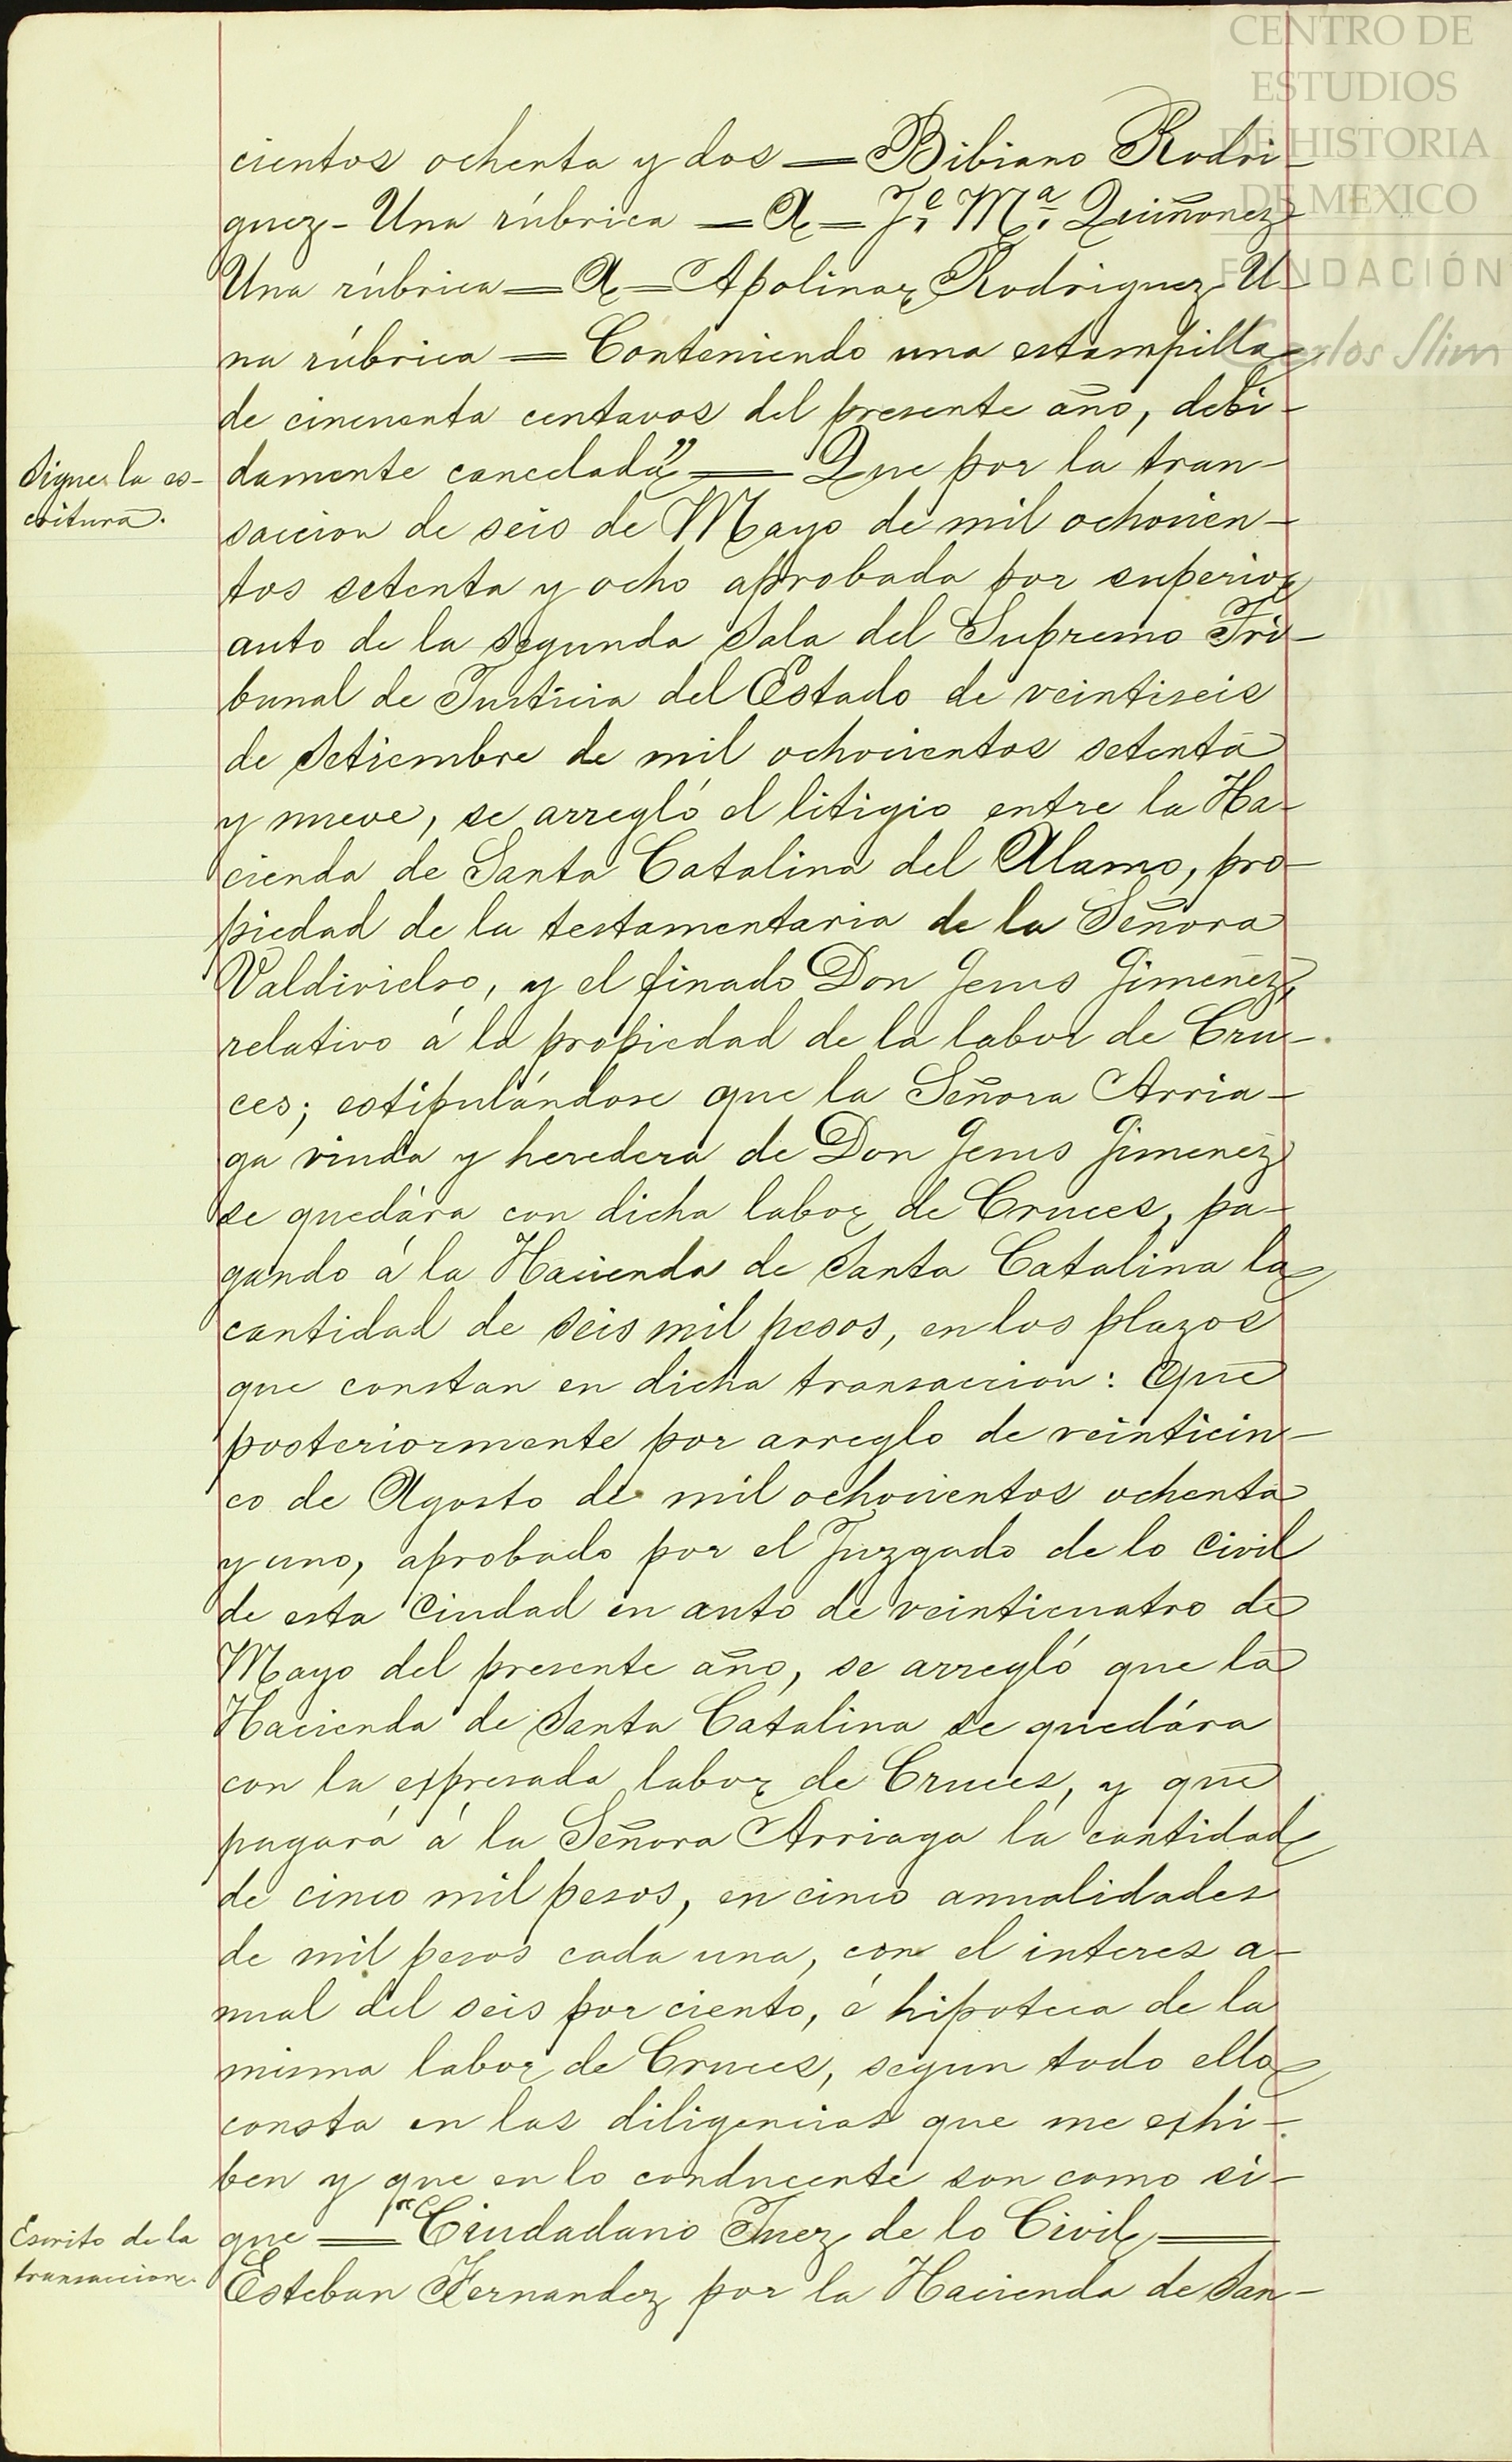 CENTRO DE
ESTUDIOS
DE HISTORIA
DE MEXICO
FUNDACIÓN
Carlos Slim
cientos ochenta y dos = Bibiano Rodri-
guez - Una rúbrica = A = Je. Ma. Quiñonez
Una rúbrica = A = Apolinar Rodriguez U-
na rúbrica = Conteniendo una estampilla
de cincuenta centavos del presente año, debi-
Sigue la es-
critura.
damente cancelada" = Que por la tran-
saccion de seis de Mayo de mil ochocien-
tos setenta y ocho aprobada por superior
auto de la segunda Sala del Supremo Tri-
bunal de Justicia del Estado de veintiseis
de Setiembre de mil ochocientos setenta
y nueve, se arregló el litigio entre la Ha-
cienda de Santa Catalina del Alamo, pro-
piedad de la testamentaria de la Señora
Valdivielso, y el finado Don Jesus Jimenez,
relativo á la propiedad de la labor de Cru-
ces; estipulándose que la Señora Arria-
ga viuda y heredera de Don Jesus Jimenez
se quedára con dicha labor de Cruces, pa-
gando á la Hacienda de Santa Catalina la
cantidad de seis mil pesos, en los plazos
que constan en dicha transaccion: Que
posteriormente por arreglo de veinticin-
co de Agosto de mil ochocientos ochenta
y uno, aprobado por el Juzgado de lo Civil
de esta Ciudad en auto de veinticuatro de
Mayo del presente año, se arregló que la
Hacienda de Santa Catalina se quedára
con la expresada labor de Cruces, y que
pagará á la Señora Arriaga la cantidad
de cinco mil pesos, en cinco anualidades
de mil pesos cada una, con el interes a-
nual del seis por ciento, é hipoteca de la
misma labor de Cruces, segun todo ello
consta en las diligencias que me exhi-
ben y que en lo conducente son como si-
Escrito de la
transaccion.
gue = "Ciudadano Juez de lo Civil =
Esteban Fernandez por la Hacienda de San-